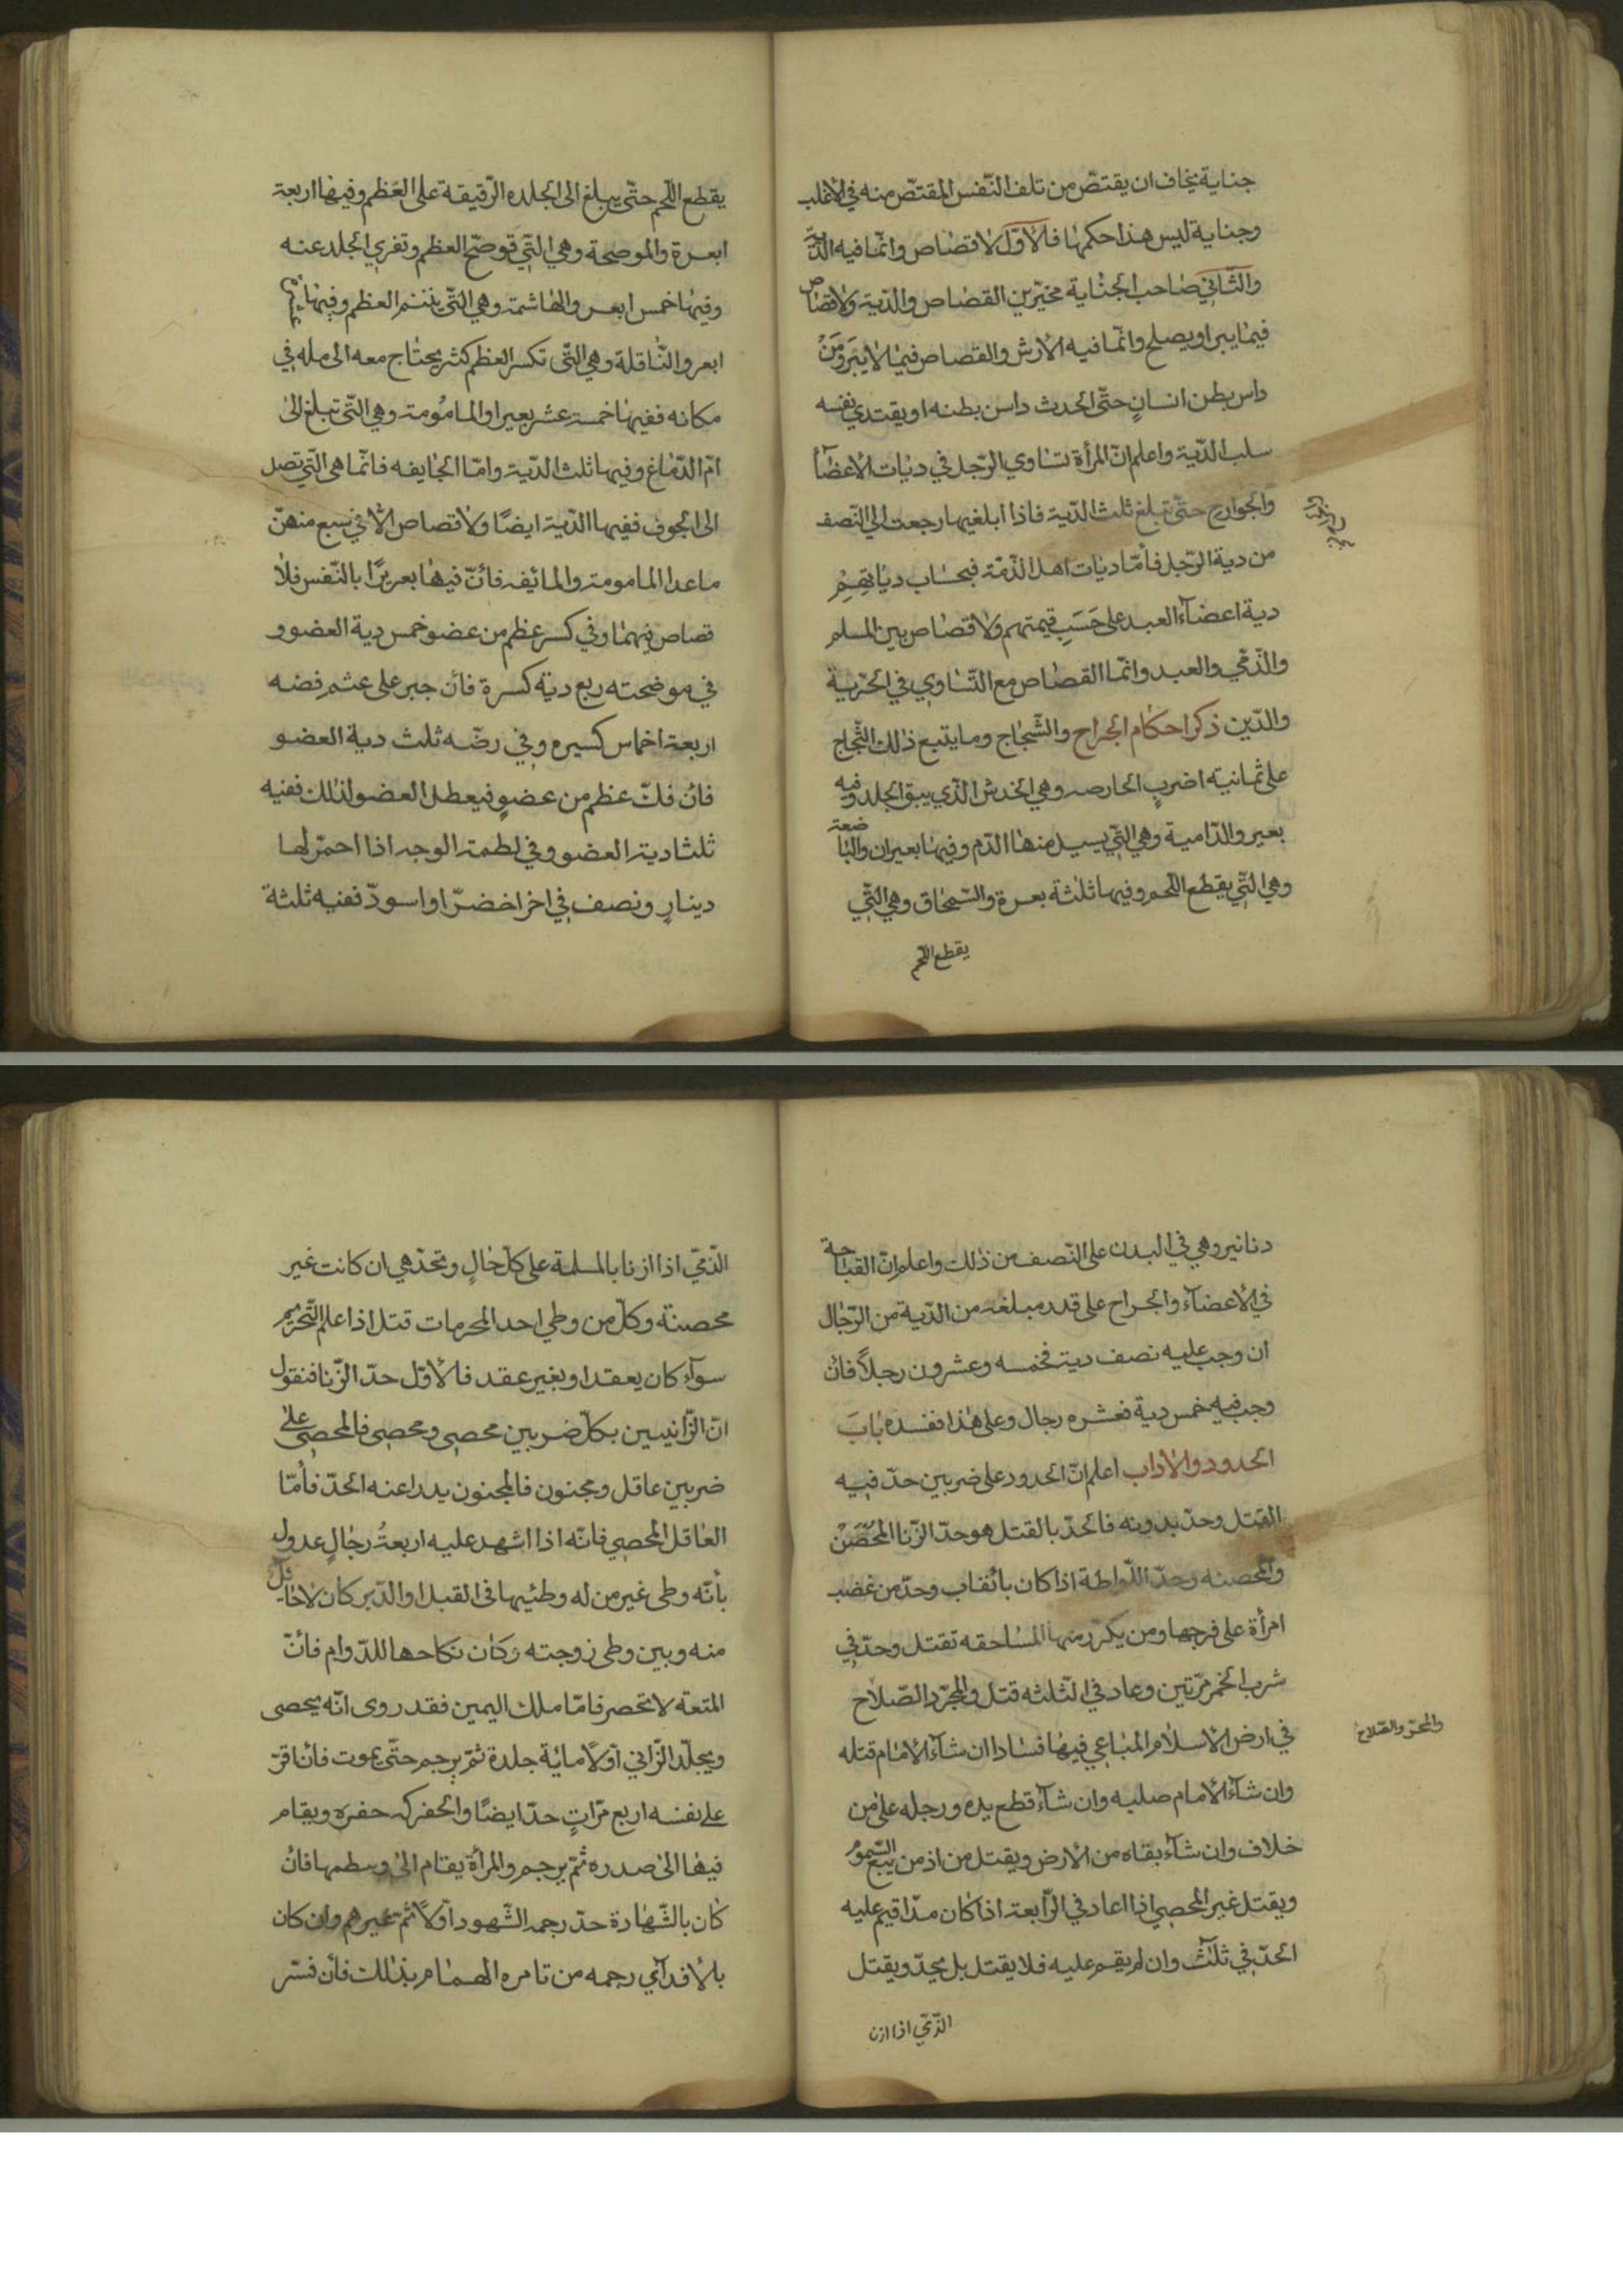 جناية يخاف ان يقتصّ من تلف النّفس المقتصّ منه في الأغلب
وجناية ليس هذا حكمها فالأوّل لا قصاص وانّما فيه الدّية
والثّاني صاحب الجناية مخيّر بين القصاص والدّية ولا قصاص
فيما يبرا ويصلح وانّما فيه الأرش والقصاص فيما لا يبرؤ ومَنْ
داس بطن انسانٍ حتّى احدث داس بطنه او يقتدي نفسه
سلب الدّية واعلم انّ المرأة تساوي الرّجل في ديات الاعضآء
والجوارح حتّى تبلغ ثلث الدّية فاذا ابلغيها رجعت الى النّصف
من دية الرّجل فأمّا ديات اهل الذّمّة فبحساب دياتهِمِ
دية اعضآء العبد على حَسَبِ قيمتهم ولا قصاص بين المسلم
والذّمّي والعبد وانّما القصاص مع التّساوي في الحرّية
والدّين ذكر احكام الجراح والشّجاج وما يتبع ذلك الشّجاج
على ثمانية اضربٍ الحارصه وهي الخدش الّذي يبق الجلد وفيه
بعير والدّامية وهي الّتي يسيل منها الدّم وفيها بعيران والباضعة
وهي الّتي يقطع اللّحم وفيها ثلثة بعرة والسّمحاق وهي الّتي
يقطع اللّحم
يقطع اللّحم حتّى يبلغ الى الجلده الرّقيقة على العَظم وفيها اربعة
ابعرة والموضحة وهي الّتي توضّح العظم وتفري الجلد عنه
وفيها خمس ابعر والهاشمة وهي الّتي يننم العظم وفيها عشرة
ابعر والنّاقلة وهي الّتي تكسر العظم كثر يحتاج معه الى مله في
مكانه ففيها خمسة عشر بعيرا والمامُومة وهي الّتي تبلغ الىٰ
امّ الدّماغ وفيها ثلث الدّية وامّا الجايفه فانّما هي الّتي تصل
الى الجوف ففيها الدّية ايضًا ولا قصاص الّا في سبع منهنّ
ماعدا المامومة والمائفه فانّ فيها بعريرًا بالنّفس فلا
قصاص فيهما وفي كسر عظم من عضو خمس دية العضو و
في موضحته ربع دية كسرة فأن جبر على عشم فضه
اربعة اخماس كسيره وفي رضّه ثلث دية العضو
فأن فلّ عظم من عضوٍ فيعطل العضو لذلك ففيه
ثلثا دية العضو وفي لطمة الوجه اذا احمّر لها
دينارٍ ونصف في اخر اخضرّ او اسودّ ففيه ثلثة
دنانير وهي في البدن على النّصف من ذلك واعلم انّ القباحة
في الأعضآء والجراح على قدر مبلغه من الدّية من الرّجال
ان وجب عليه نصف دية فخمسه وعشرون رجلاً فأن
وجب فيه خمس دية فعشره رجال وعلى هذا ففسده بابَ
الحدود والاداب اعلم انّ الحدود على ضربين حدّ فيه
القتل وحدّ بدونه فالحدّ بالقتل هو حدّ الزّنا المحصَنْ
والمحصنه وحدّ اللّواطة اذا كان بانقاب وحدّ من غضب
امرأة على فرجها ومن يكرّر منها المساحقه تقتل وحدّ في
شرب الخمر مرّتين وعاد في الثلثه قتل والمجرّد الصّلاح
والمجرّ والصّلاح
في ارض الأسلام المباعي فيها فسادا ان شآء الأمام قتله
وان شآء الأمام صلبه وان شآء قطع يده ورجله على من
خلاف وان شآء بقاه من الأرض ويقتل من اذمن يبع السّموُ
ويقتل غير المحصي اذا اعاد في الرّابعة اذا كان مدّا قيم عليه
الحدّ في ثلثٍ وان لم يقم عليه فلا يقتل بل يحدّ ويقتل
الذّميّ اذا ازن
الذّميّ اذا ازنا بالمسلمة على كلّ حالٍ وتحدّ هي ان كانت غير
محصنة وكلّ من وطي احد المحرمات قتل اذا علم التّحريم
سوآء كان بعقد او بغير عقد فالأوّل حدّ الزّنا فنقول
انّ الزّانيين بكلّ ضربين محصي ومحصي فالمحصي على
ضربين عاقل ومجنون فالمجنون يدراعنه الحدّ فأمّا
العاقل المحصي فانّه اذا اشهد عليه اربعةُ رجالٍ عدول
بأنّه وطى غير من له وطئيها في القبل او الدّبر كان لا حائل
منه وبين وطى زوجته وكان نكاحها للدّوام فأنّ
المتعة لا تحصر فامّا ملك اليمين فقد روى انّه يحصى
ويجلّد الزّاني اوّلاً مائة جلدة ثمّ يرجم حتّى يموت فأن اقرّ
على نفسه اربع مرّاتٍ حدّ ايضًا والحفر كه حفره ويقام
فيها الىٰ صدره ثمّ يرجم والمرأة يقام الىٰ وسطها فأن
كان بالشّهادة حدّ رجمه الشّهود اوّلاً ثمّ غيرهم وان كان
بالأقدآي رجمه من تامره الهمام بذلك فأن فسّر